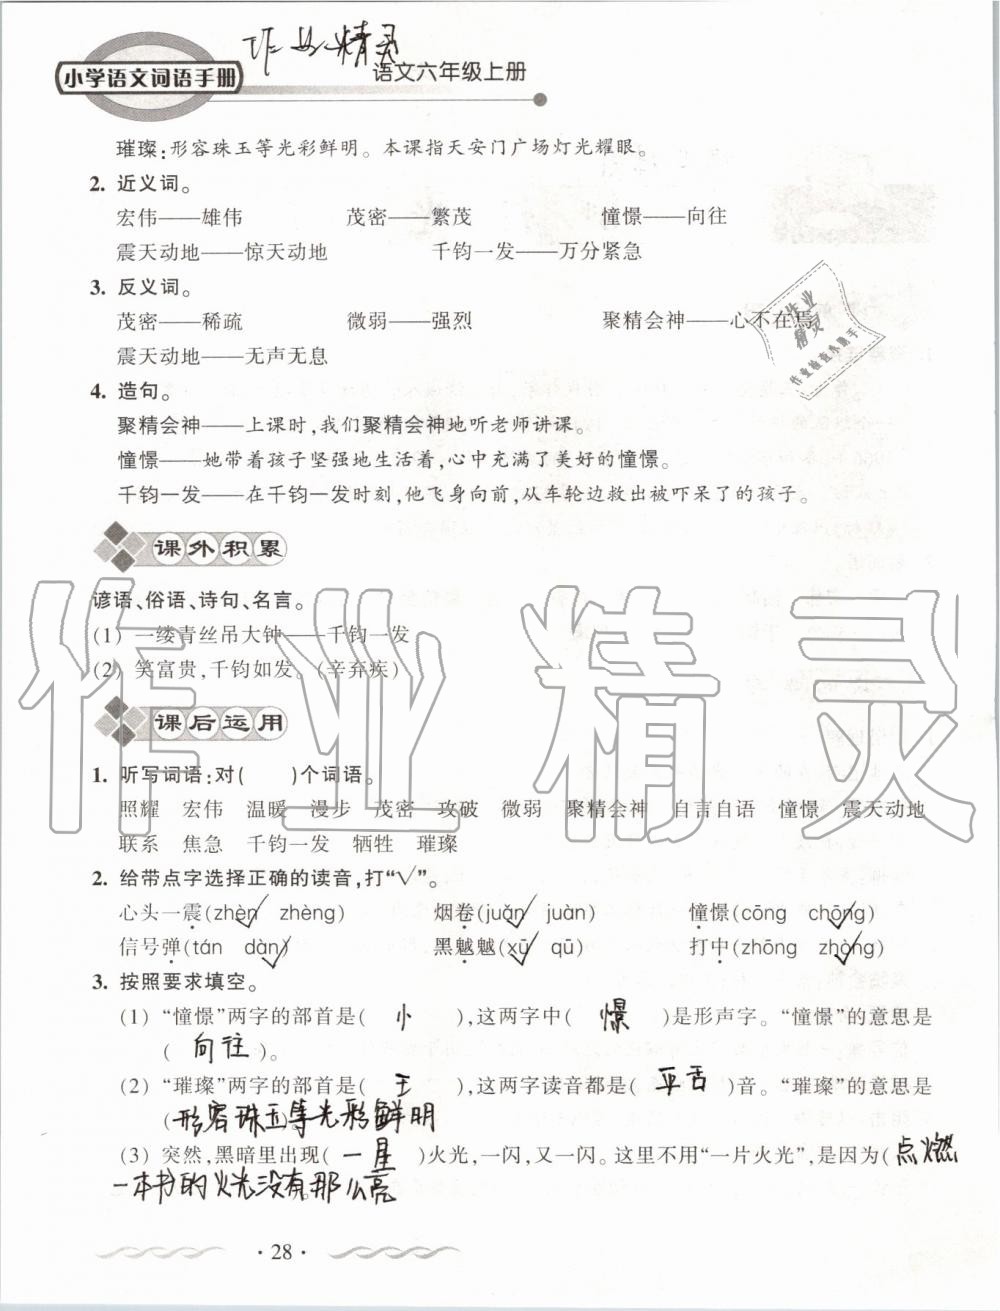 作业精灵
小学语文词语手册
语文六年级上册
璀璨:形容珠玉等光彩鲜明。本课指天安门广场灯光耀眼。
2. 近义词。
宏伟——雄伟 茂密——繁茂 憧憬——向往
震天动地——惊天动地 千钧一发——万分紧急
3. 反义词。
茂密——稀疏 微弱——强烈 聚精会神——心不在焉
震天动地——无声无息
作业
精灵
作业检查小助手
4. 造句。
聚精会神——上课时,我们聚精会神地听老师讲课。
憧憬——她带着孩子坚强地生活着,心中充满了美好的憧憬。
千钧一发——在千钧一发时刻,他飞身向前,从车轮边救出被吓呆了的孩子。
课外积累
谚语、俗语、诗句、名言。
(1) 一缕青丝吊大钟——千钧一发
(2) 笑富贵,千钧如发。(辛弃疾)
作业精灵
课后运用
1. 听写词语:对( )个词语。
照耀 宏伟 温暖 漫步 茂密 攻破 微弱 聚精会神 自言自语 憧憬 震天动地
联系 焦急 千钧一发 牺牲 璀璨
2. 给带点字选择正确的读音,打“√”。
心头一震(zhèn✓ zhèng) 烟卷(juǎn✓ juàn) 憧憬(cōng chōng✓)
信号弹(tán dàn✓) 黑魆魆(xū✓ qū) 打中(zhōng zhòng✓)
3. 按照要求填空。
(1) “憧憬”两字的部首是( 忄 ),这两字中( 憬 )是形声字。“憧憬”的意思是
( 向往 )。
(2) “璀璨”两字的部首是( 王 ),这两字读音都是( 平舌 )音。“璀璨”的意思是
(形容珠玉等光彩鲜明
(3) 突然,黑暗里出现( 一星 )火光,一闪,又一闪。这里不用“一片火光”,是因为(点燃
一本书的火光没有那么亮
· 28 ·